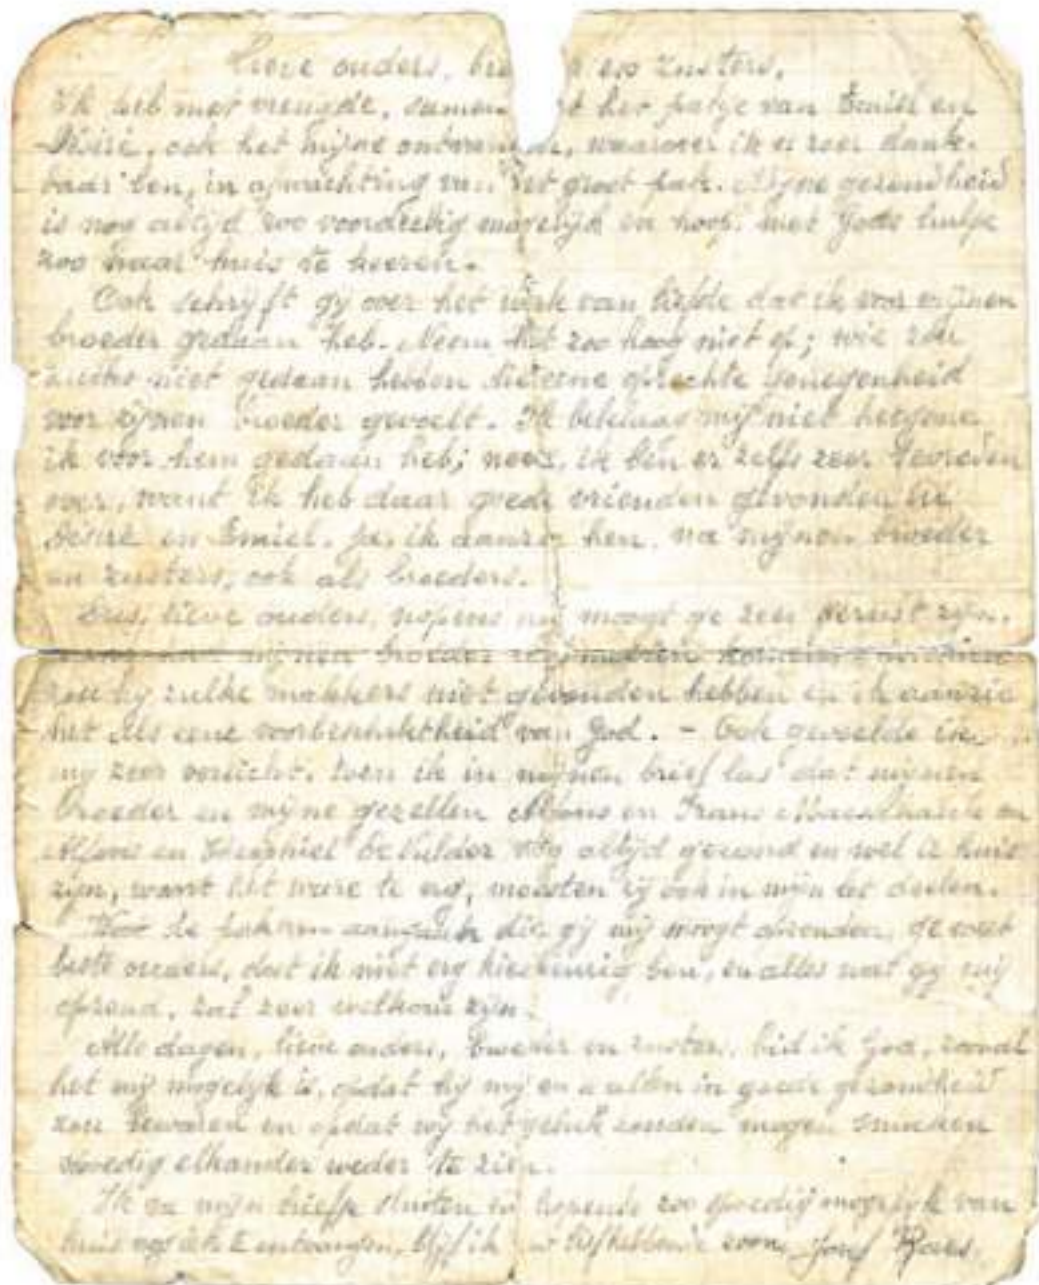 Lieve ouders, en zusters,
Ik heb met vreugde, samen het pakje van Emiel en
Désiré, ook het mijne ontvangen, waarover ik u zeer dank-
baar ben, in afwachting van het groot pak. Mijne gezondheid
is nog altijd zoo voordeelig mogelijk en hoop, met Gods hulpe
zoo naar huis te keeren.
Ook schrijft gy over het werk van liefde dat ik voor mijnen
broeder gedaan heb. Neem het zoo hoog niet op; wie zou
zulks niet gedaan hebben die eene oprechte genegenheid
voor zijnen broeder gevoelt. Ik beklaag mij niet hetgene
ik voor hem gedaan heb; neen, ik ben er zelfs zeer tevreden
over, want ik heb daar goede vrienden gevonden in
Désiré en Emiel. Ja, ik aanzie hen, na mijnen broeder
en zusters, ook als broeders.
Dus, lieve ouders, nopens mij moogt ge zeer gerust zijn.
mijnen broeder
zou hy zulke makkers niet gevonden hebben en ik aanzie
het als eene voorbeschiktheid van God. - Ook gevoelde ik
my zeer verlicht, toen ik in mijnen brief las dat mijnen
broeder en mijne gezellen Alfons en Frans en
Alfons en nog altijd gezond en wel te huis
zijn, want het ware te erg, moesten zij ook in mijn lot deelen.
Voor de pakken aangaande die gij mij moogt opzenden, ge weet
beste ouders, dat ik niet erg kieskeurig ben, en alles wat gy mij
opzend, zal zeer welkom zijn.
Alle dagen, lieve ouders, broeder en zusters, bid ik God, zooveel
het mij mogelijk is, opdat hij mij en u allen in goede gezondheid
zou bewaren en opdat wij het geluk zouden mogen smaken
spoedig elkander weder te zien.
Ik ga mijn briefje sluiten in hopende zoo spoedig mogelijk van
huis nog iets te ontvangen, blijf ik uw liefhebbende zoon, Jozef